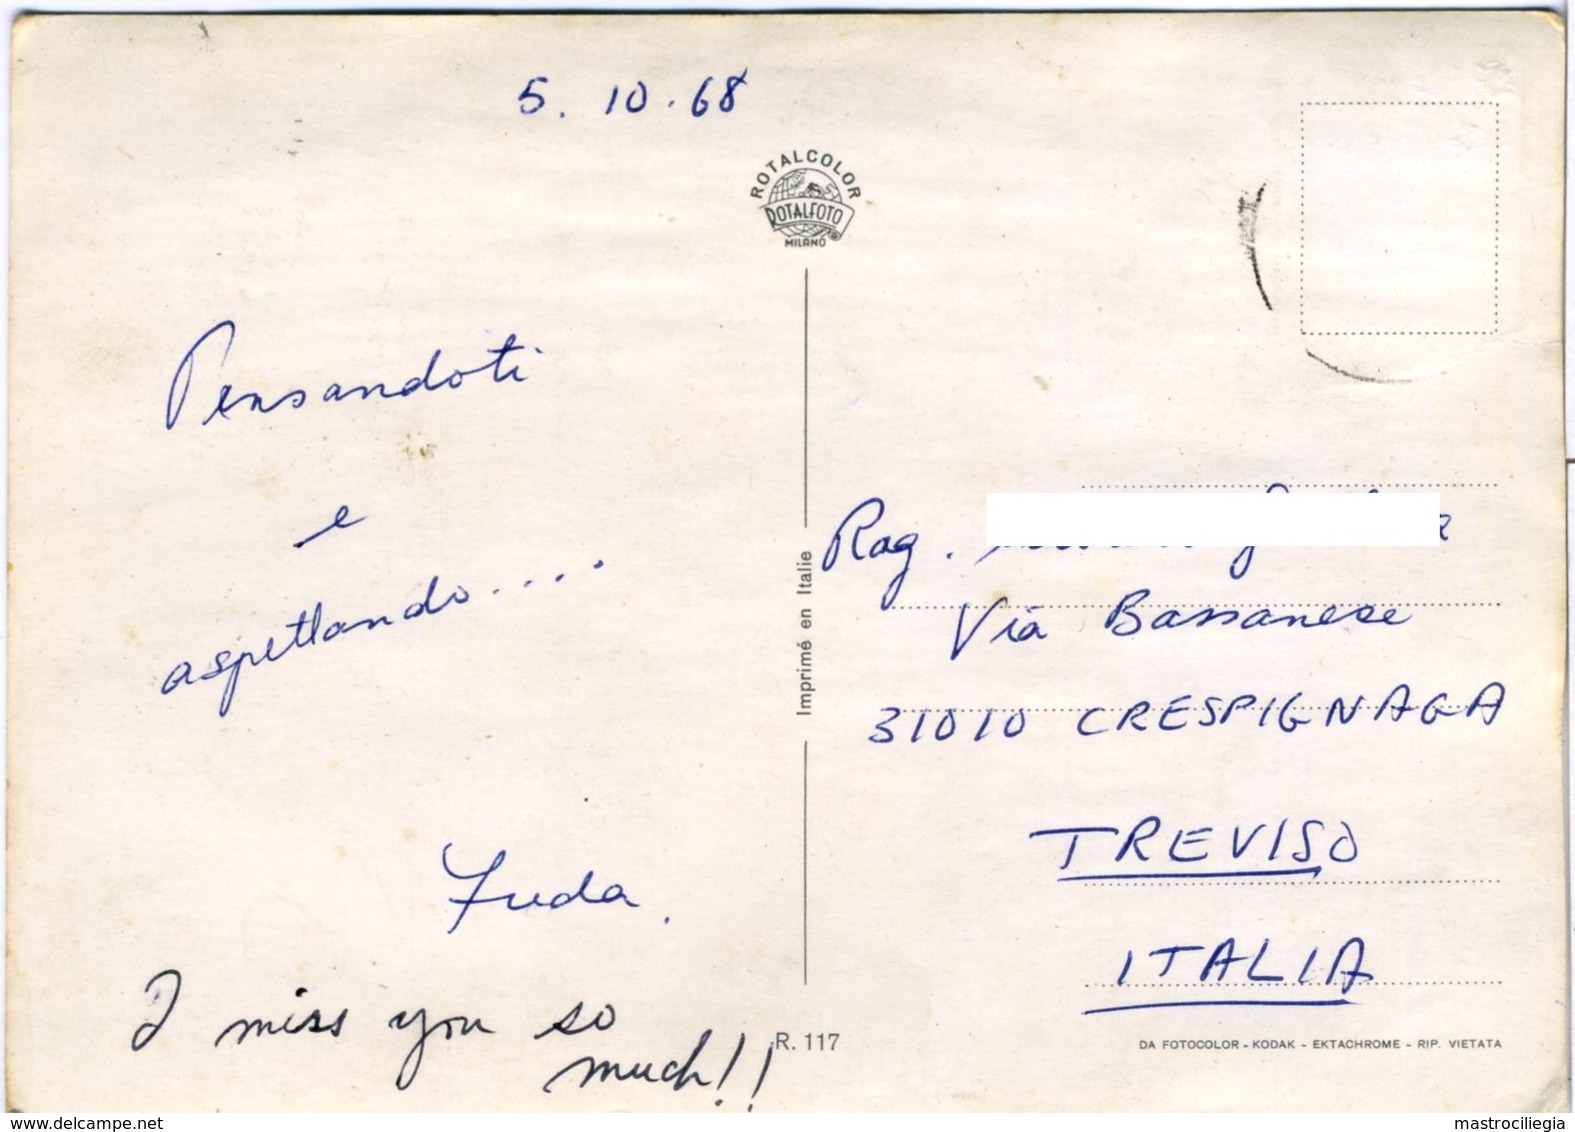 5. 10. 68
ROTALCOLOR
ROTALFOTO
MILANO
Pensandoti
e
aspettando....
I miss you so
much!!
Imprimé en Italie
Rag.
Via Bassanese
31010 CRESPIGNAGA
TREVISO
ITALIA
R. 117
DA FOTOCOLOR - KODAK - EKTACHROME - RIP. VIETATA
delcampe.net
mastrociliegia